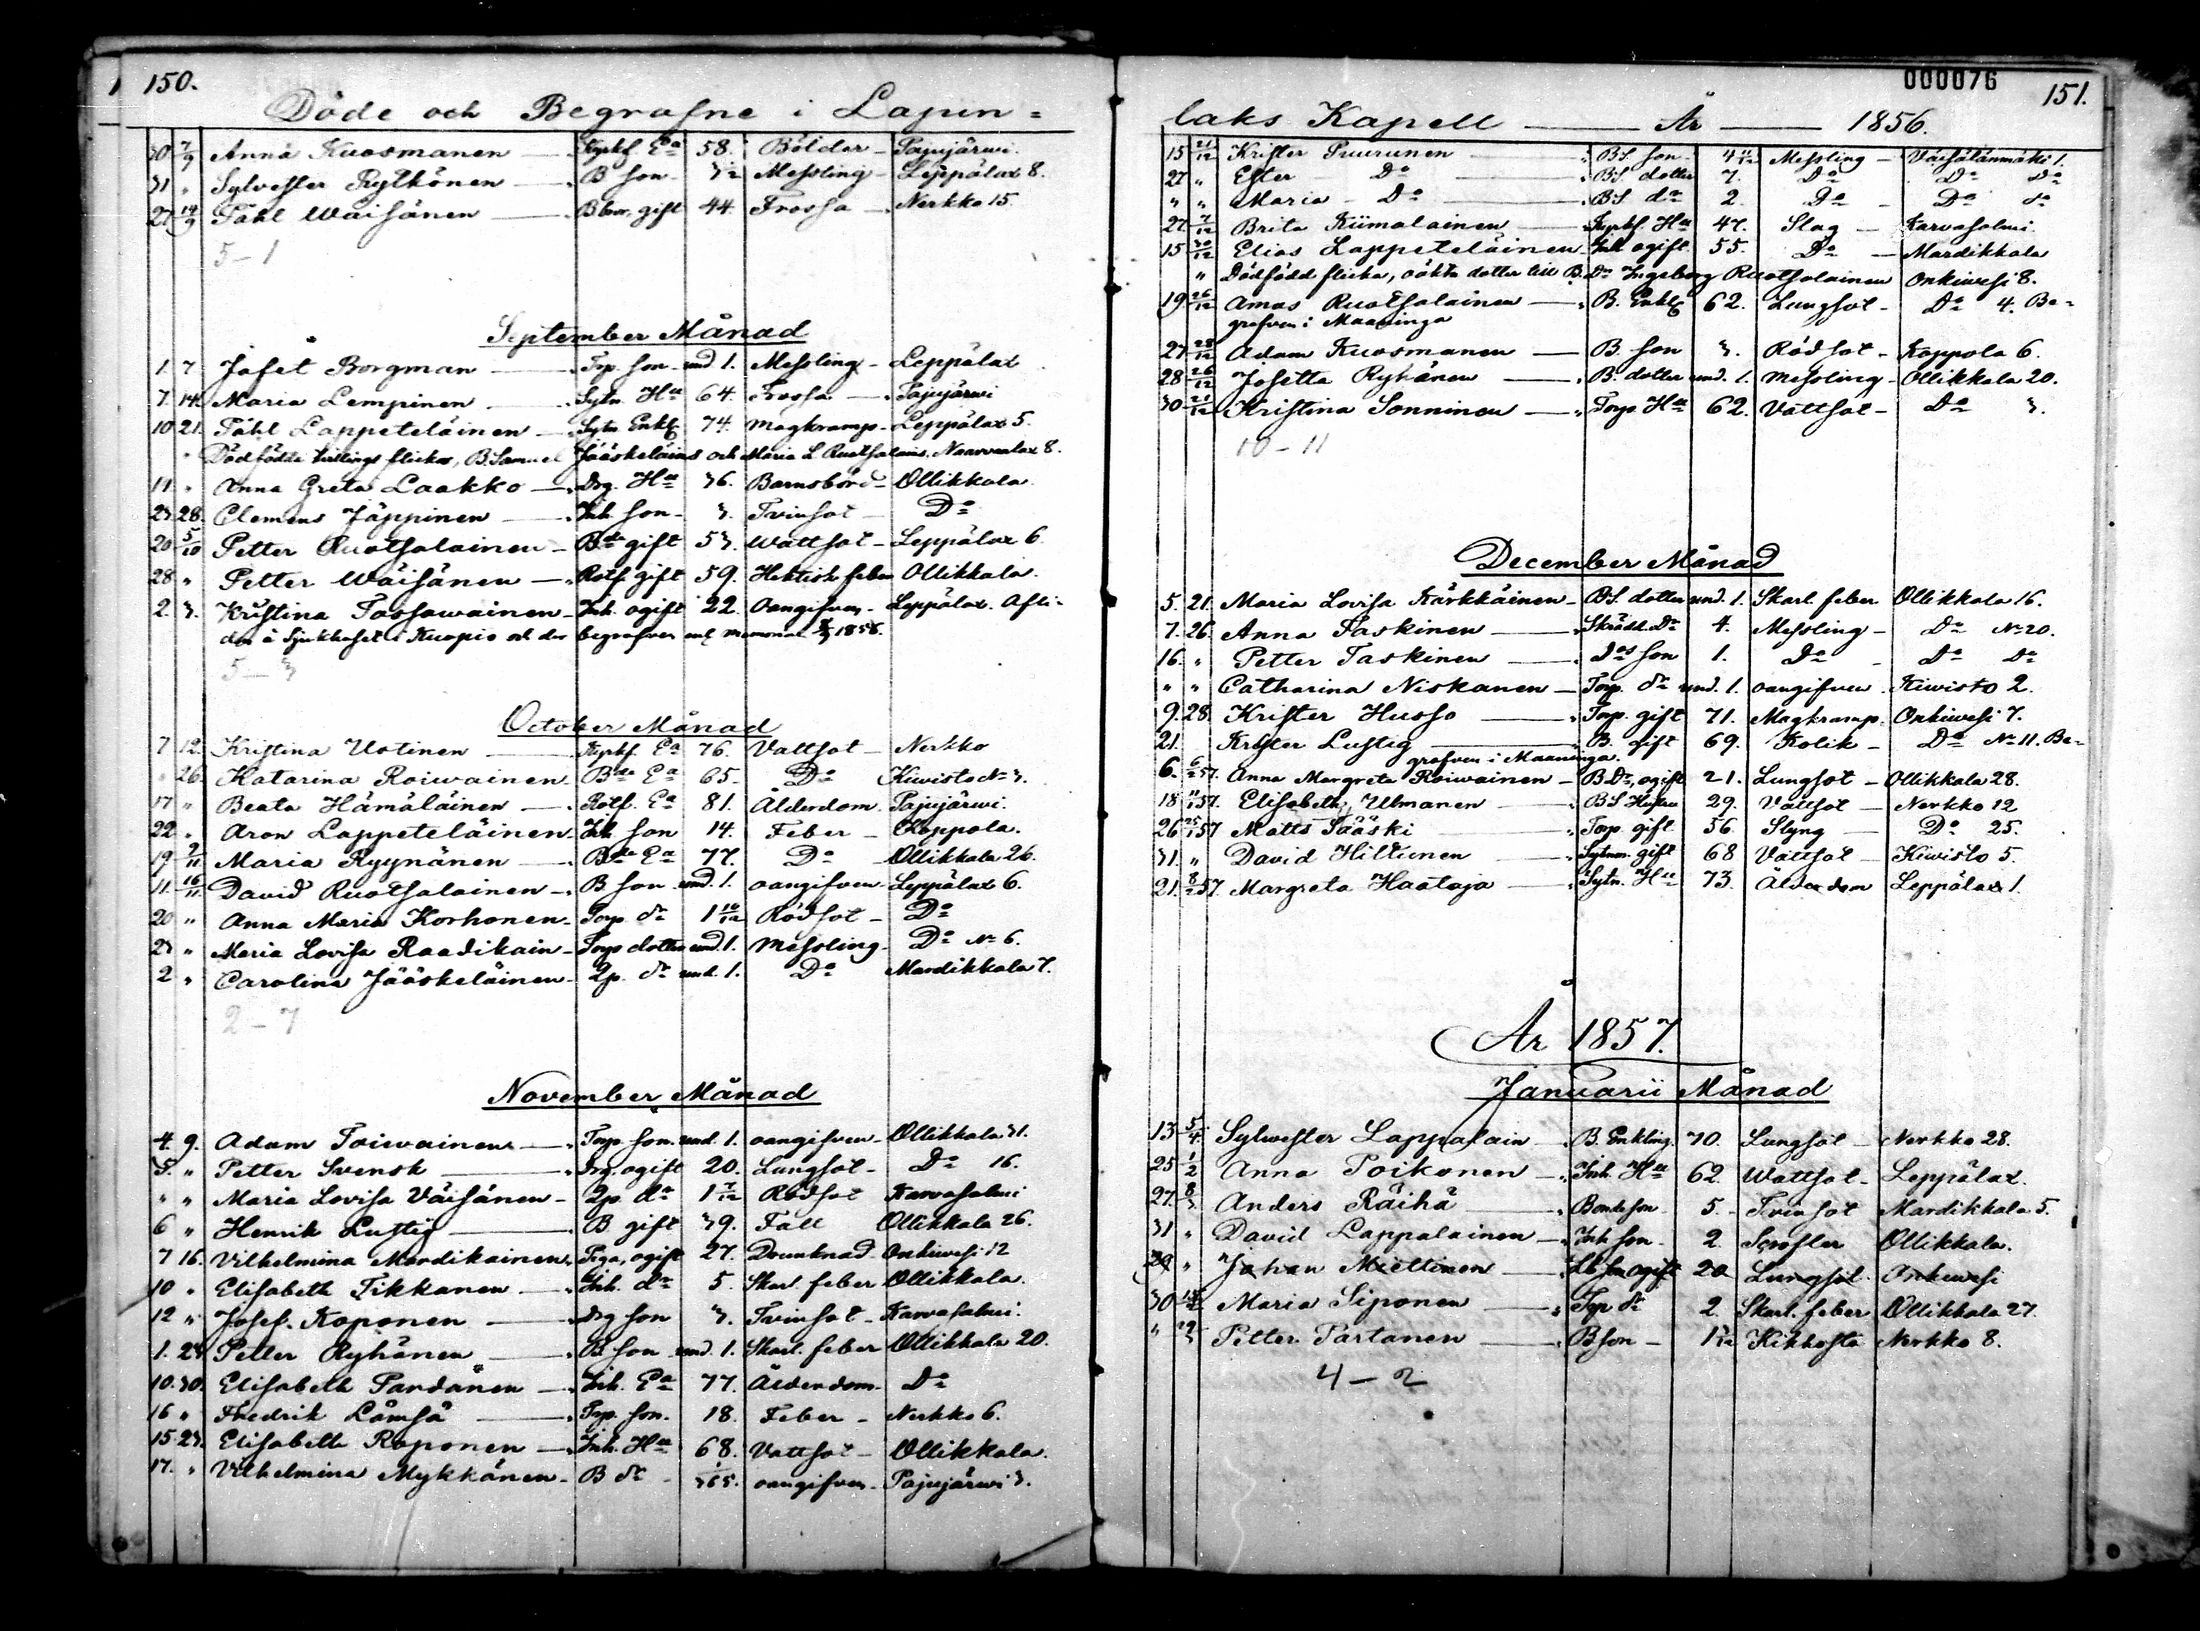 150.
Döde och Begrafne i Lapin=
30 7/9 Anna Kuosmanen — Kyrkf. Ea 58. Bölder — Pajujärwi.
31 " Sylvester Rytkönen — B son — Messling — Leppälax 8.
27 14/9 Påhl Wäisänen — gift 44. Frossa — Nerkko 15.
5–1
September Månad
1. 7. Josef Borgman — Torp. son und 1. Messling — Leppälax
7. 14. Maria Lempinen — Sytn. Hu 64. Frossa — Pajujärwi
10 21. Påhl Lappeteläinen — Sytn. Enkl. 74. Magkramp — Leppälax 5.
" Dödfödda tvillings flickor, B. Samuel Jääskeläins och Maria L. Ruotsalains. Naarvanlax 8.
11. " Anna Greta Laakko — Drg. Hu 36. Barnsbörd — Ollikkala.
23 28. Clemens Jäppinen — Inh. son — 3. Tvinsot — Do
20 5/10 Petter Ruotsalainen — Bde gift 53. Wattsot — Leppälax 6.
28 " Petter Wäisänen — Rotf. gift 59. Hektisk feber Ollikkala.
2. 3. Kristina Tossawainen — Inh. ogift 22. oangifven — Leppälax. Afli-
den å Sjukhuset i Kuopio och der begrafven enl. memorial 1856.
5–3
October Månad
7 12. Kristina Ustinen — Kyrkf. Ea 76. Vattsot — Nerkko
" 26. Katarina Roivainen — Bde Ea 65. Do Kiwisto No 3.
17 " Beata Hämäläinen — Rotf. Ea 81. Ålderdom. Pajujärwi.
22. " Aron Lappeteläinen — Inh. son 14. Feber — Koppola.
19 2/11 Maria Ryynänen — Bde Ea 77. Do — Ollikkala 26.
11. 16/11 David Ruotsalainen — B son und. 1. oangifven — Leppälax 6.
20 " Anna Maria Korhonen — Torp. dr 1 10/12 Rödsot — Do
23 " Maria Lovisa Raadikain — Torp dotter und 1. Messling — Do No 6.
2 " Carolina Jääskeläinen — Lp. dr und. 1. Do Mardikkala 7.
2–7
November Månad
4. 9. Adam Toiwainen — Torp son und. 1. oangifven — Ollikkala 31.
5. " Petter Svensk — Drg. ogift 20. Lungsot — Do 16.
" " Maria Lovisa Väisänen — Lp. dr 1 7/12 Rödsot Karvasalmi
6 " Henrik Lustig — B gift 39. Fall Ollikkala 26.
7 16. Vilhelmina Mardikainen — Piga, ogift 27. Drunknad — Onkiwesi 12
10 " Elisabeth Tikkanen — Inh. dr 5. Skarl. feber Ollikkala.
12 " Josef Koponen — Drg son 3. Tvinsot — Karvasalmi.
1. 23 Petter Ryhänen — B son und. 1. Skarl. feber Ollikkala 20.
10. 30. Elisabeth Pardänen — Inh. Ea 77. Ålderdom — Do
16 " Fredrik Lämsä — Torp. son. 18. Feber — Nerkko 6.
15 23. Elisabeth Roponen — Inh. Hu 68. Vattsot — Ollikkala.
17. " Vilhelmina Mykkänen — B dr — 1/365. oangifven — Pajujärwi 3.
000076
151.
laks Kapell — År — 1856.
15 21/12 Krister Puurunen — BS. son — 4 11/12 Messling — Väisälänmäki 1.
27 " Ester Do — BS. dotter 7. Do Do Do
" " Maria Do — BS. dr 2. Do Do do
27 7/12 Brita Kiimalainen — Kyrkf. Hu 47. Slag — Karvasalmi.
15 30/12 Elias Lappeteläinen — Inh. ogift 55. Do — Mardikkala
" Dödfödd flicka, oäkta dotter till B. Dr Ingeborg Ruotsalainen Onkiwesi 8.
19 26/12 Amos Ruotsalainen — B. Enkl. 62. Lungsot — Do 4. Be-
grafven i Maaninga
27 28/12 Adam Kuosmanen — B. son 3. Rödsot — Koppola 6.
28 26/12 Josetta Ryhänen — B. dotter und. 1. Messling — Ollikkala 20.
30 21/12 Kristina Sonninen — Torp. Hu 62. Vattsot — Do 3.
10–11
December Månad
5. 21. Maria Lovisa Kärkkäinen — BS. dotter und. 1. Skarl. feber Ollikkala 16.
7. 26. Anna Taskinen — Skrädd. Dr 4. Messling — Do No 20.
16. " Petter Taskinen — Dos son 1. Do — Do Do
" " Catharina Niskanen — Torp. dr und. 1. oangifven. Kiwisto 2.
9. 28. Krister Husso — Torp. gift 71. Magkramp. Onkiwesi 7.
21. Krister Lustig — B. gift 69. Kolik — Do No 11. Be-
grafven i Maaninga.
6. 6/2 57. Anna Margreta Roivainen — B Dr, ogift 21. Lungsot — Ollikkala 28.
18 57. Elisabeth Ulmanen — BS Hustru 29. Vattsot — Nerkko 12
26 25/1 57 Matts Sääski — Torp. gift 56. Styng — Do 25.
31. " David Hiltunen — Sytnm. gift 68 Vattsot — Kiwisto 5.
21. 8/2 57. Margreta Haataja — Sytn. Hu 73. Ålderdom Leppälax 1.
År 1857.
Januarii Månad
13 5/4 Sylvester Lappalain — B. Enkling. 70. Lungsot — Nerkko 28.
25 1/2 Anna Toikonen — Inh. Hu 62. Wattsot — Leppälax.
27. 8/3 Anders Räihä — Bonde son 5. Tvinsot Mardikkala 5.
31 " David Lappalainen — Inh son. 2. Scrofler Ollikkala.
29 " Johan Miettinen — ogift 20 Lungsot Onkiwesi
30 Maria Siponen — Torp dr 2. Skarl. feber Ollikkala 27.
" Petter Partanen — B son — 1 Kikhosta Nerkko 8.
4–2